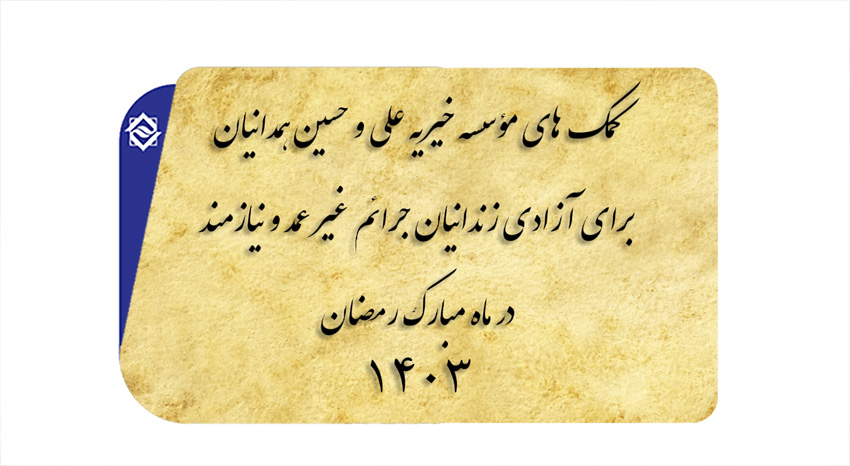 کمک های مؤسسه خیریه علی و حسین همدانیان
برای آزادی زندانیان جرائم غیر عمد و نیازمند
در ماه مبارک رمضان
۱۴۰۳